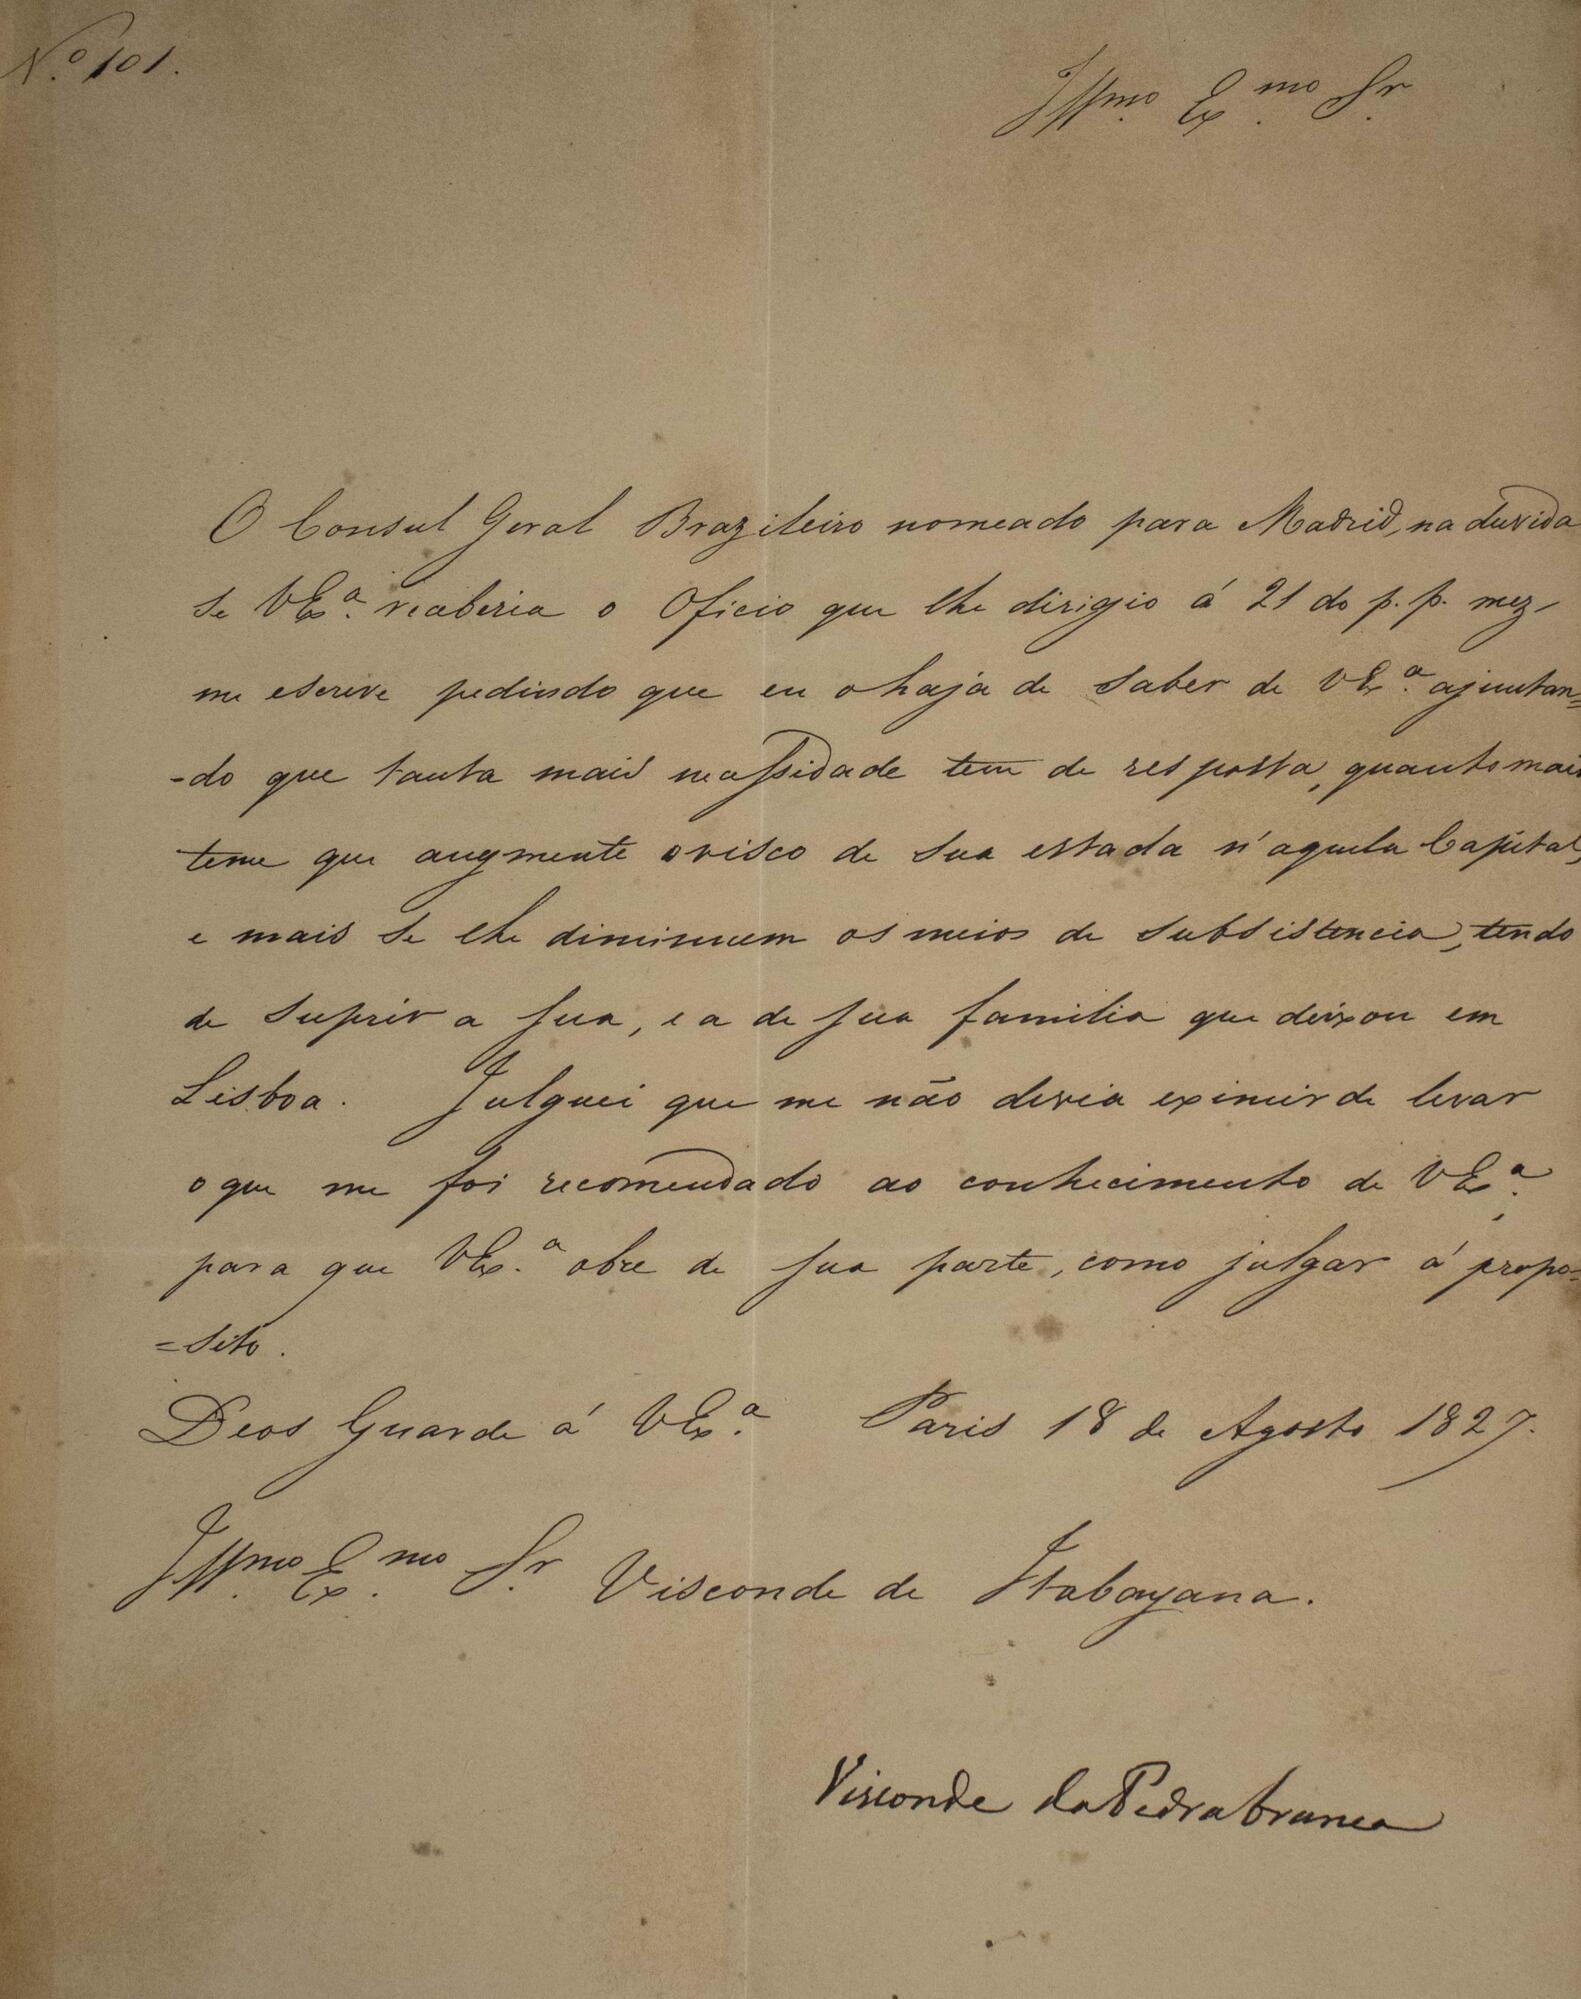 N.º 101.
Ill.mo Ex.mo Sr.
O Consul Geral Brazileiro nomeado para Madrid, na duvida
se VEx.ª receberia o Oficio que lhe dirigio á 21 do p. p. mez,
me escreve pedindo que eu o haja de saber de VEx.ª ajuntan=
-do que tanta mais necessidade tem de resposta, quanto mais
teme que augmente o risco de sua estada n'aquela Capital,
e mais se lhe diminuem os meios de subsistencia, tendo
de suprir a sua, e a de sua familia que deixou em
Lisboa. Julguei que me não devia eximir de levar
o que me foi recomendado ao conhecimento de VEx.ª,
para que VEx.ª obre de sua parte, como julgar á propo=
=sito.
Deos Guarde á VEx.ª Paris 18 de Agosto 1827.
Ill.mo Ex.mo Sr. Visconde de Itabayana.
Visconde da Pedra branca